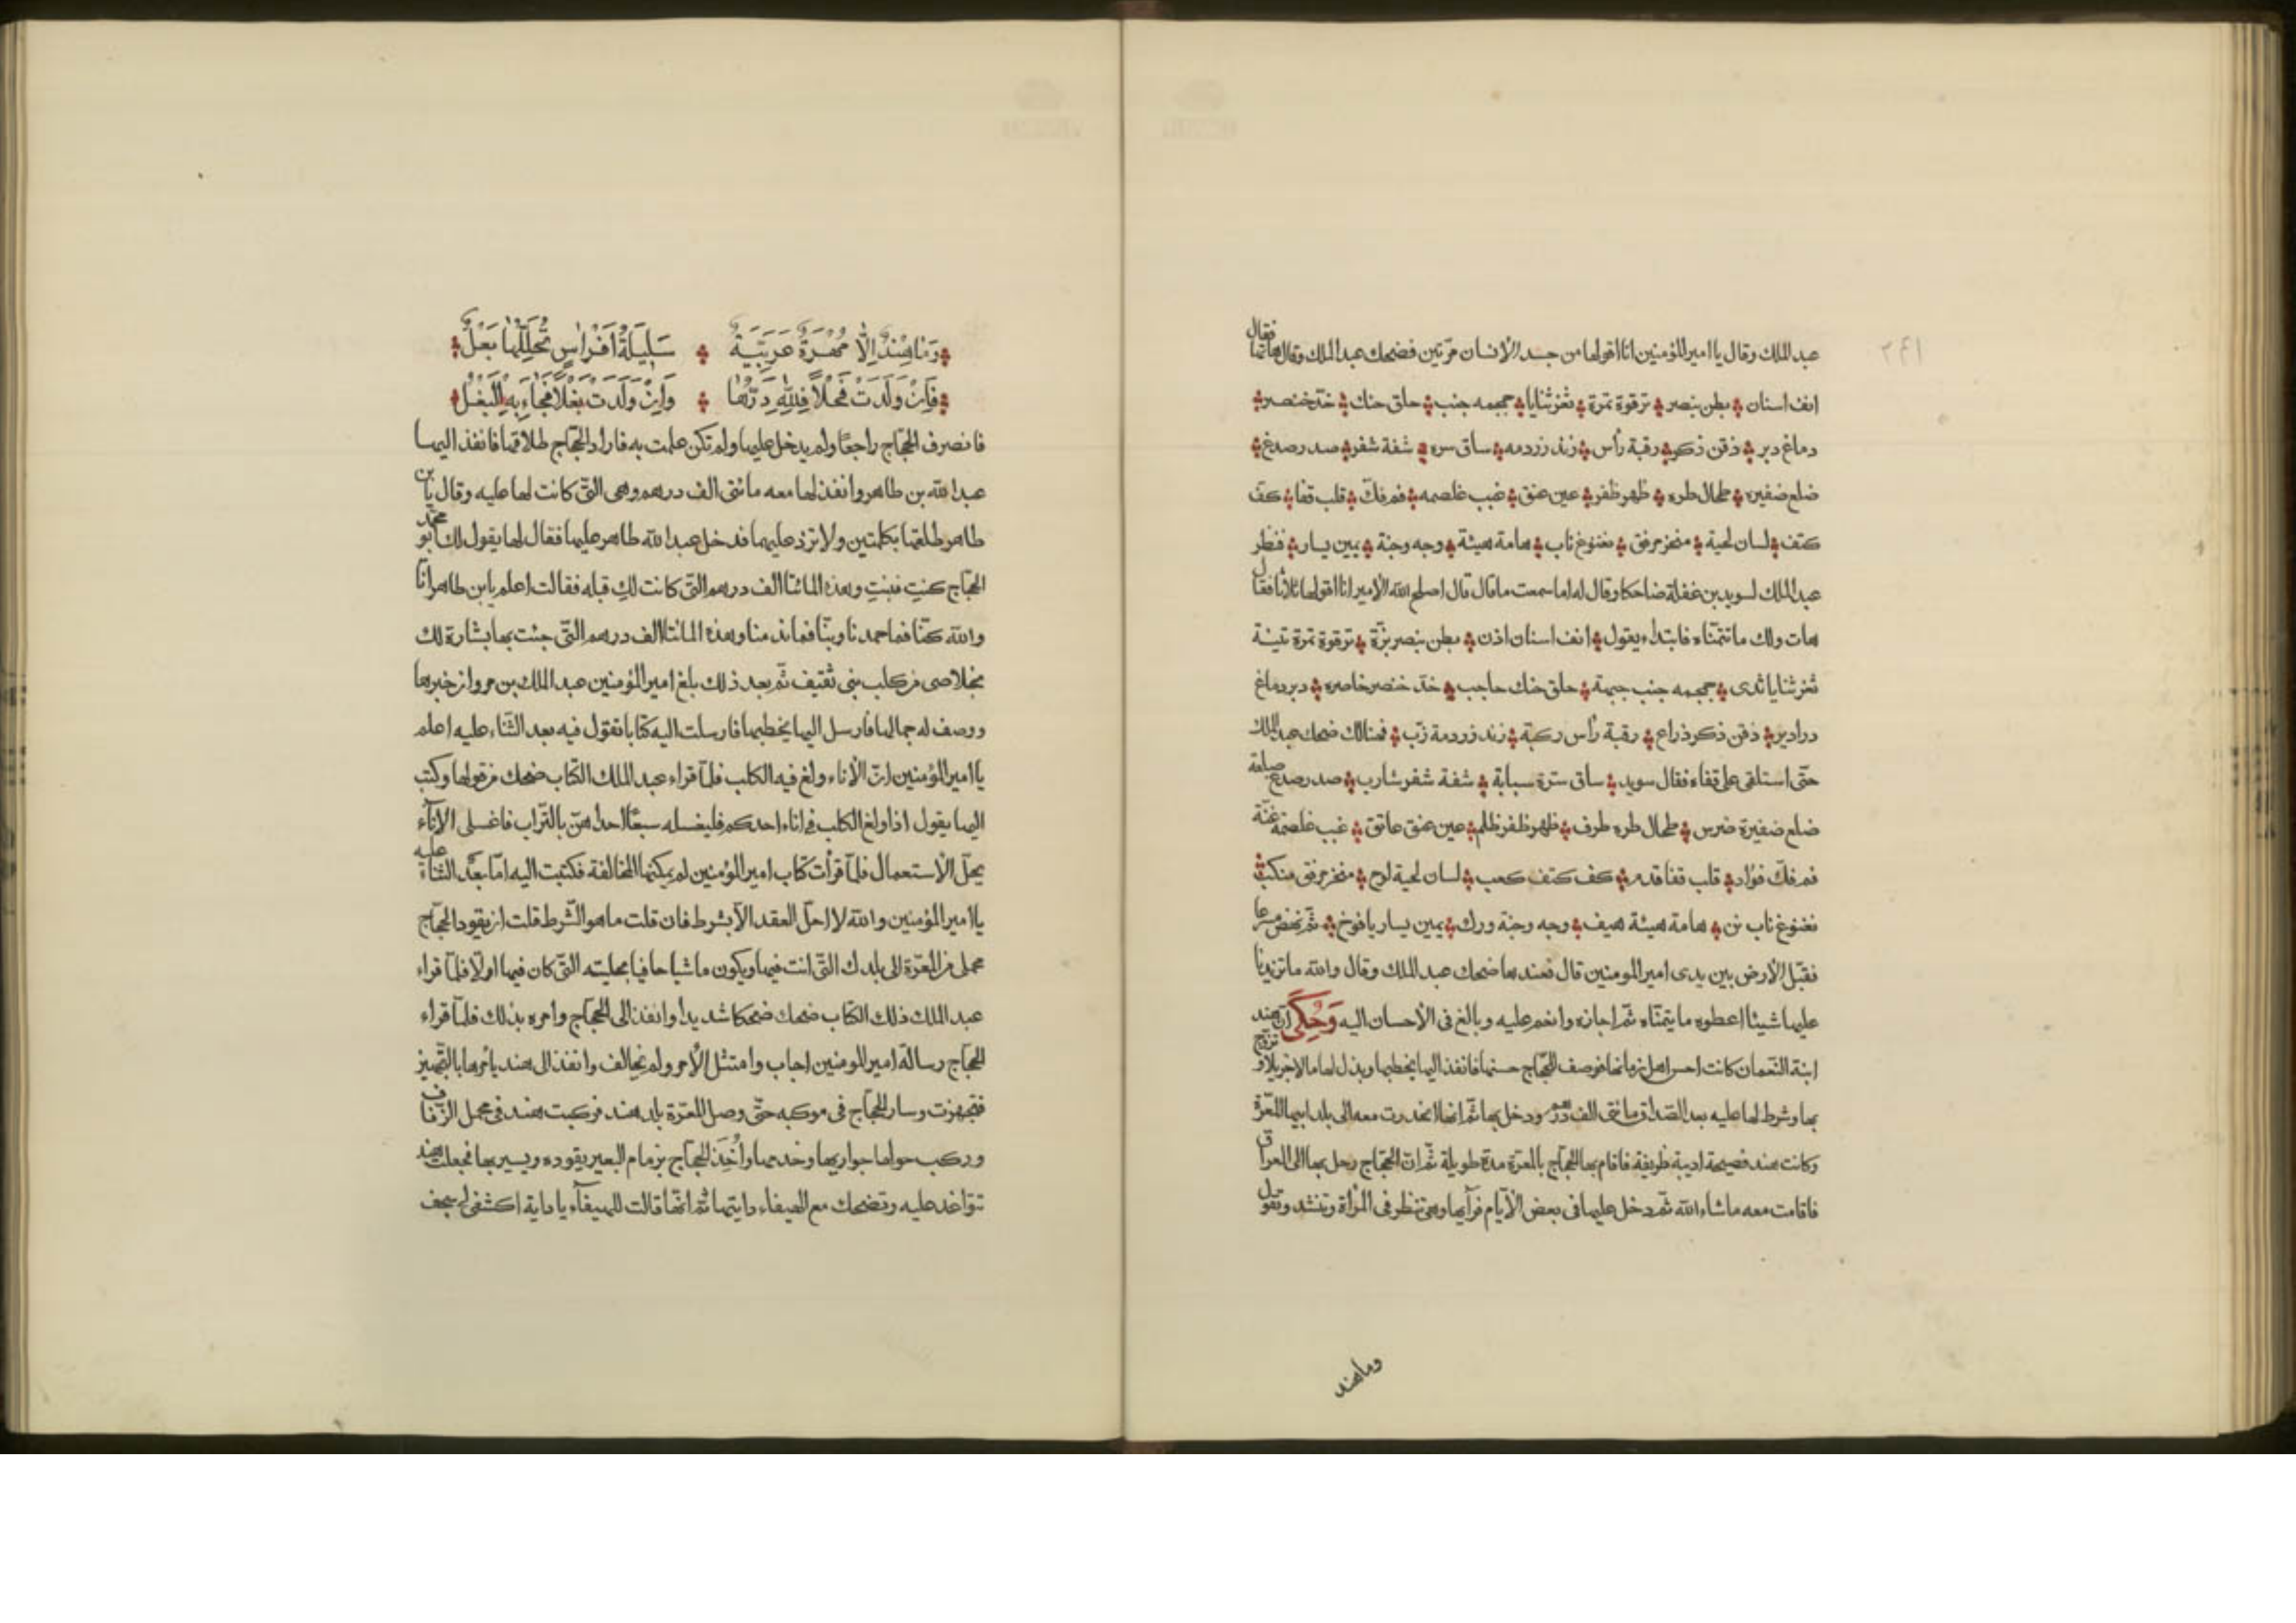 عبد الملك وقال يا امير المؤمنين انا اقولها من جسد الانسان مرّتين فضحك عبد الملك وقال هاتها فقال
انف اسنان بطن بنصر ترقوة تمرة ثغر ثنايا جمجمه جنب حلق حنك خدّ خنصر
دماغ دبر ذقن ذكر رقبة رأس زند زردمه ساق سره شفة شفر صدر صدغ
ضلع ضفيره طحال طره ظهر ظفر عين عنق غبب غلصمه فم فكّ قلب قفا كفّ
كتف لسان لحية منخر مرفق نغنوغ ناب هامة هيئة وجه وجنة يمين يسار فنظر
عبد الملك لسويد بن غفلة ضاحكا وقال له اما سمعت ما قال قال اصلح الله الامير انا اقولها ثلاثا فقال
هات ولك ما تتمنّاه فابتداء يقول انف اسنان اذن بطن بنصر بزّة ترقوة تمرة تينة
ثغر ثنايا ثدى جمجمه جنب جبهة حلق حنك حاجب خدّ خنصر خاصره دبر دماغ
درادير ذقن ذكر ذراع رقبة رأس ركبة زند زردمة زبّ فهنالك ضحك عبد الملك
حتّى استلقى على قفاه فقال سويد ساق سرّة سبابة شفة شفر شارب صدر صدغ صلعة
ضلع ضفيرة ضرس طحال طره طرف ظهر ظفر ظلم عين عنق عاتق غبب غلصمة غنّة
فم فكّ فؤاد قلب قفا قدم كف كتف كعب لسان لحية لوح منخر مرفق منكب
نغنوغ ناب نن هامة هيئة هيف وجه وجنة ورك يمين يسار يافوخ ثمّ نهض مسرعا
فقبّل الارض بين يدى امير المومنين قال فعندها ضحك عبد الملك وقال والله ما تزيدنا
عليها شيئا اعطوه ما يتمنّاه ثمّ اجازه وانعم عليه وبالغ فى الاحسان اليه وَحُكِىَ انّ هند
ابنة النّعمان كانت احسن اهل زمانها فوصف للحجّاج حسنها فانفذ اليها يخطبها وبذل لها مالا جزيلا وتزوج
بها وشرط لها عليه بعد الصّداق مائتى الف درهم ودخل بها ثمّ انها انحدرت معه الى بلد ابيها المعّرة
وكانت هند فصيحة اديبة ظريفة فاقام بها الحجّاج بالمعرّة مدة طويلة ثمّ انّ الحجّاج رحل بها الى العراق
فاقامت معه ماشاء الله ثمّ دخل عليها فى بعض الايّام فرآيها وهى تنظر فى المرأة وتنشد وتقول
وما هند
وَمَا هِنْدُ اِلّا مُهْرَةٌ عَرَبِيَّةٌ سَلِيلَةُ اَفْرَاسٍ تُحَلِّلُهَا بَعْلٌ
فَاِنْ وَلَدَتْ فَحْلًا فَلِلّٰهِ دَرُّهَا وَاِنْ وَلَدَتْ بَغْلًا فَجَاءَ بِهِ الْبَغْلُ
فانصرف الحجّاج راجعًا ولم يدخل عليها ولم تكن علمت به فاراد الحجّاج طلاقها فانفذ اليها
عبد الله بن طاهر وانفذ لها معه مائتى الف درهم وهى التّى كانت لها عليه وقال يا بن
طاهر طلقها بكلمتين ولا تزد عليهما فدخل عبد الله طاهر عليها فقال لها يقول لك ابو محمّد
الحجّاج كنتِ فبنتِ وهذه المائتا الف درهم التّى كانت لكِ قبله فقالت اعلم يا بن طاهر انّا
والله كنّا فما حمدنا وبنّا فما ندمنا وهذه المائتا الف درهم التّى جئت بها بشارة لك
بخلاصى من كلب بنى ثقيف ثمّ بعد ذلك بلغ امير المؤمنين عبد الملك بن مروان خبرها
ووصف له جمالها فارسل اليها يخطبها فارسلت اليه كتابا تقول فيه بعد الثّناء عليه اعلم
يا امير المؤمنين انّ الاناء ولغ فيه الكلب فلمّا قراء عبد الملك الكتاب ضحك من قولها وكتب
اليها يقول اذا ولغ الكلب فى اناء احدكم فليغسله سبعًا احداهنّ بالتّراب فاغسلى الاناء
يحلّ الاستعمال فلمّا قرأت كتاب امير المؤمنين لم يمكنها المخالفة فكتبت اليه امّا بعد الثناء عليه
يا امير المؤمنين والله لا احلّ العقد الّا بشرط فان قلت ما هو الشّرط قلت ان يقود الحجّاج
محملى من المعرّة الى بلدك التّى انت فيها ويكون ماشيا حافيا بحليته التّى كان فيها اولًا فلمّا قراء
عبد الملك ذلك الكتاب ضحك ضحكا شديدا وانفذ الى الحجّاج وامره بذلك فلمّا قراء
الحجّاج رسالة امير المومنين اجاب وامتثل الأمر ولم يخالف وانفذ الى هند يأمرها بالتّجهيز
فتجهزت وسار الحجّاج فى موكبه حتّى وصل المعرّة بلد هند فركبت هند فى محمل الزّفاف
وركب حولها جواريها وخدمها واَخَذَ الحجّاج بزمام البعير يقوده ويسير بها فجعلت هند
تتواغد عليه وتضحك مع الهيفاء دايتها ثم انّها قالت للهيفآء يا داية اكشفى لى سجف